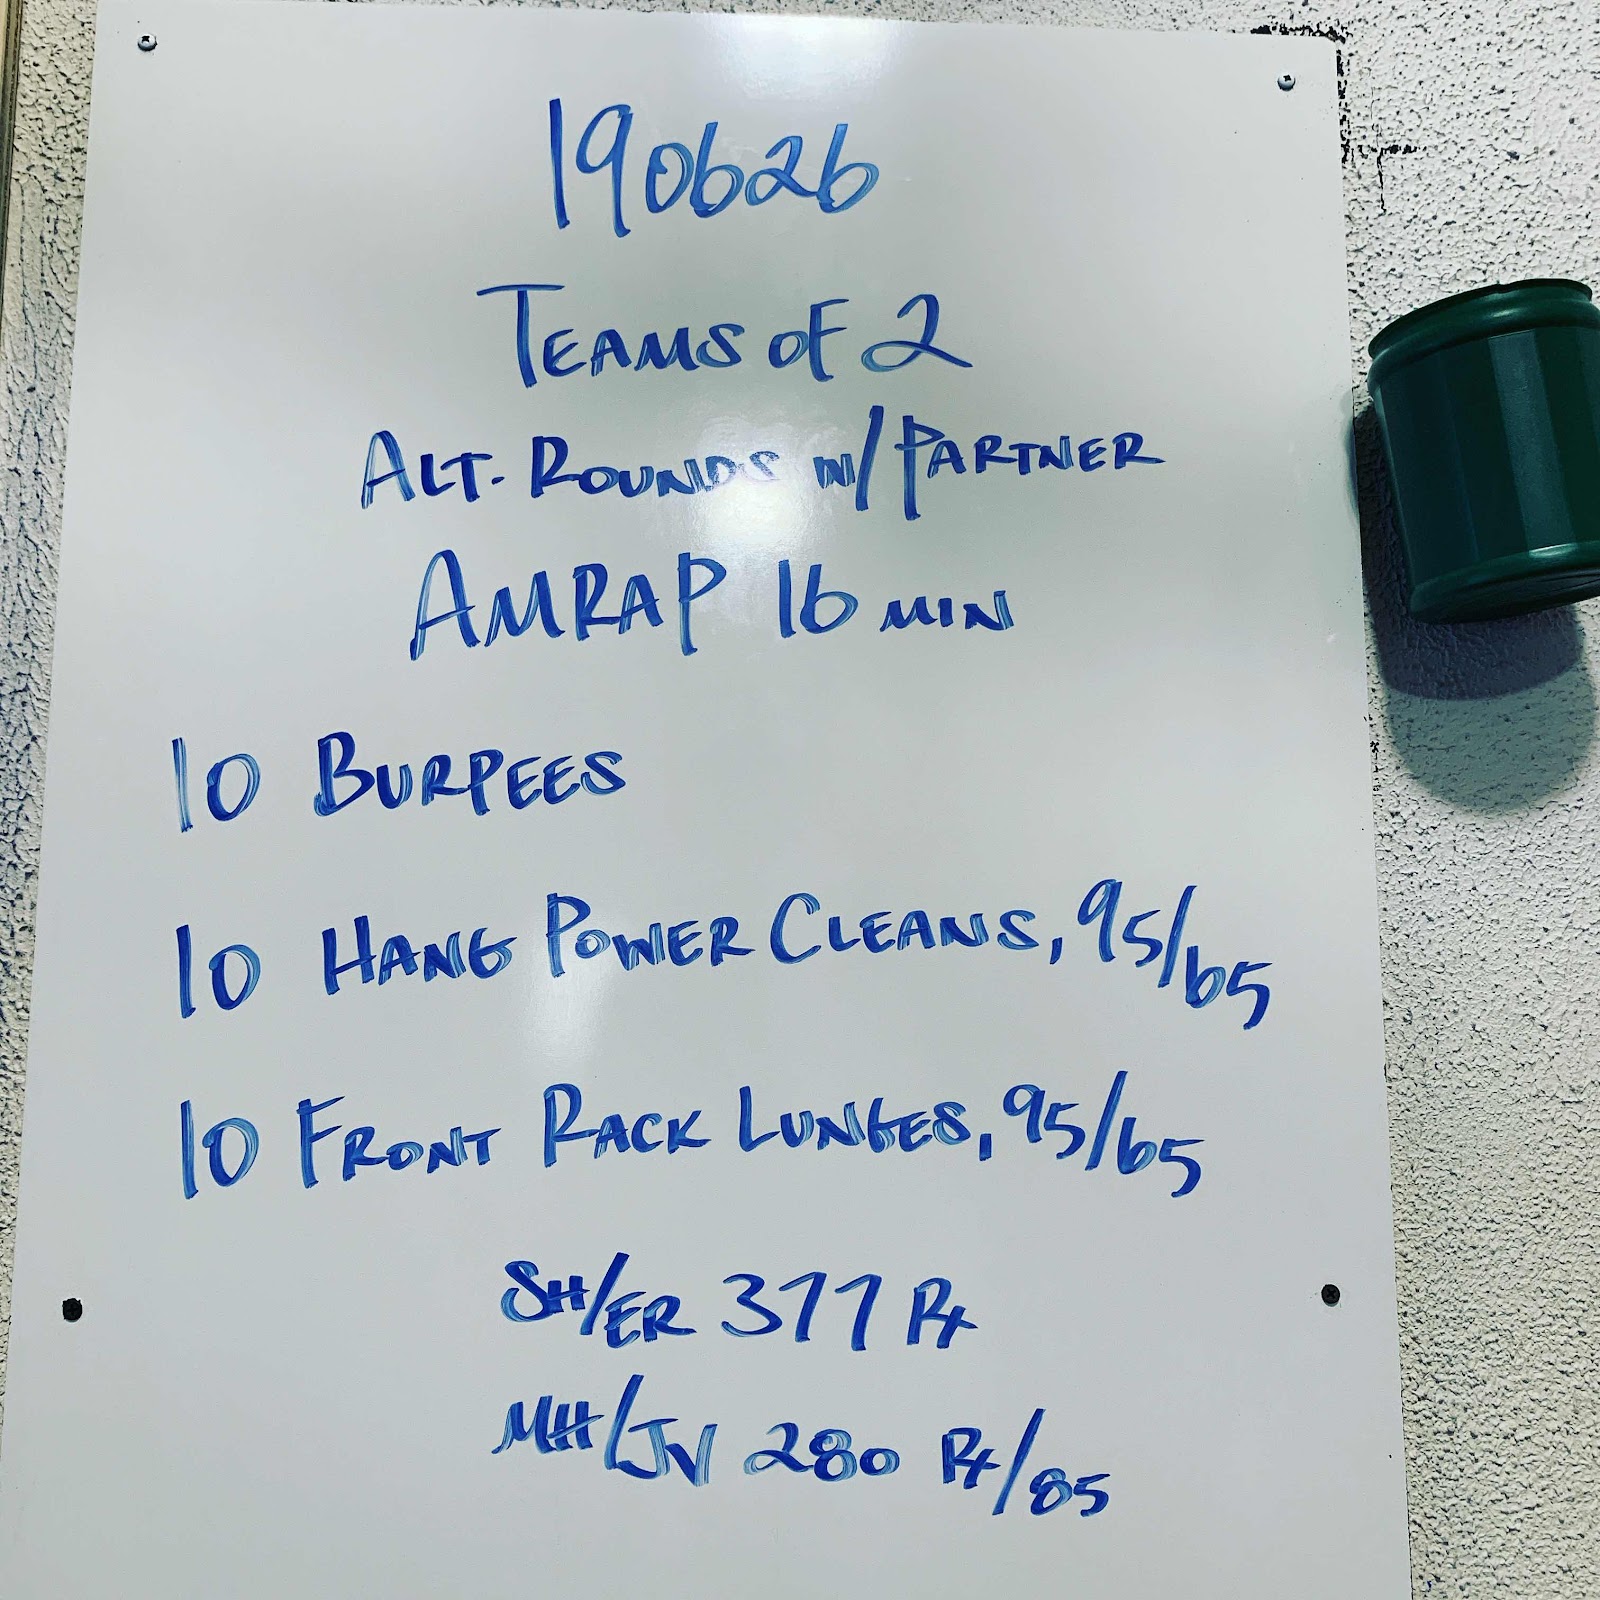 190626
TEAMS OF 2
ALT. ROUNDS W/ PARTNER
AMRAP 16 MIN
10 BURPEES
10 HANG POWER CLEANS, 95/65
10 FRONT RACK LUNGES, 95/65
SH/ER 377 Rx
MH/JV 280 Rx/85